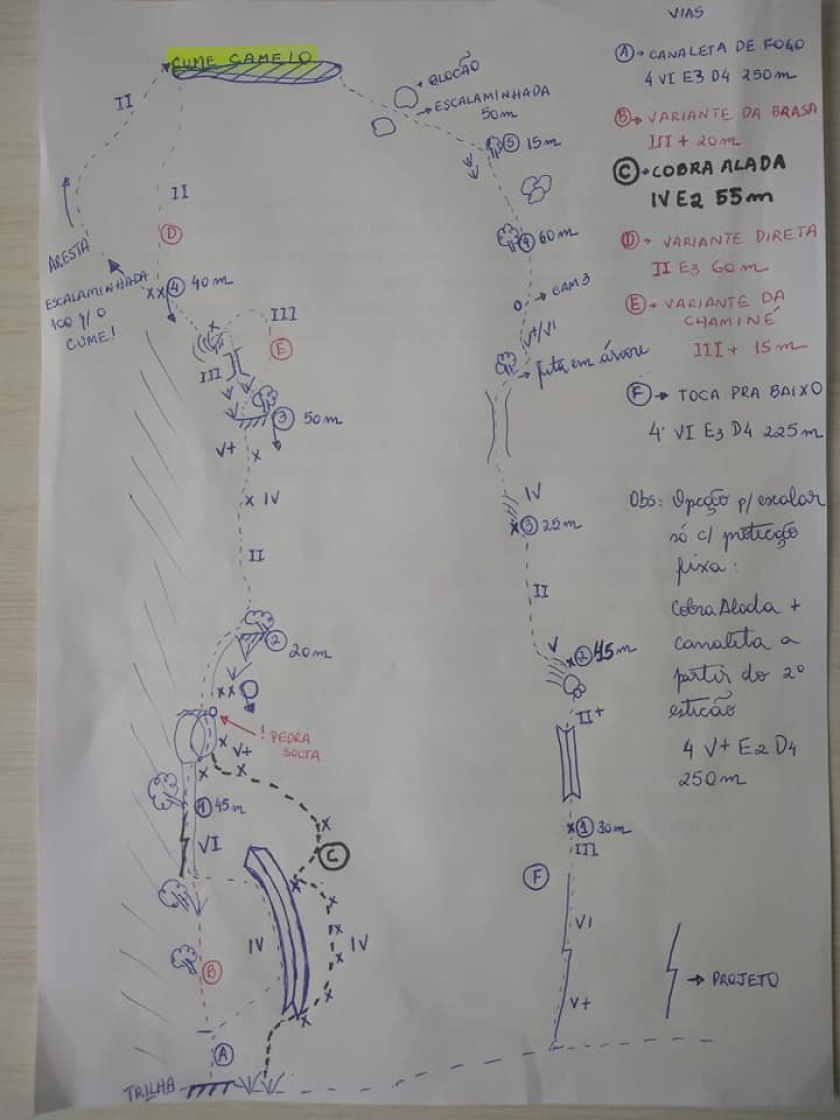 VIAS
CUME CAMELO
A → CANALETA DE FOGO
4 VI E3 D4 250m
B → VARIANTE DA BRASA
III + 20m
C → COBRA ALADA
IV E2 55m
D → VARIANTE DIRETA
II E3 60m
E → VARIANTE DA
CHAMINÉ
III + 15m
F → TOCA PRA BAIXO
4º VI E3 D4 225m
Obs: Opção p/ escalar
só c/ proteção
fixa:
Cobra Alada +
canaleta a
partir do 2º
esticão
4 V+ E2 D4
250m
→ PROJETO
II
→ BLOCÃO
→ ESCALAMINHADA
50m
5 15m
II
D
ARESTA
ESCALAMINHADA
100 % O
CUME!
XX 4 40m
4 60m
→ CAM 3
V+/VI
→ fita em árvore
x
III
E
III
3 50m
V+
x
x IV
II
IV
x 3 25m
II
2 20m
V
x 2 45m
XX
II+
! PEDRA
SOLTA
x V+
x
x
1 45m
VI
x
C
x
x 1 30m
III
F
x
x
IV
x
IV
x
x
x
B
VI
V+
A
TRILHA